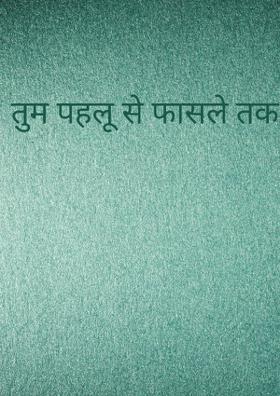 तुम पहलू से फासले तक